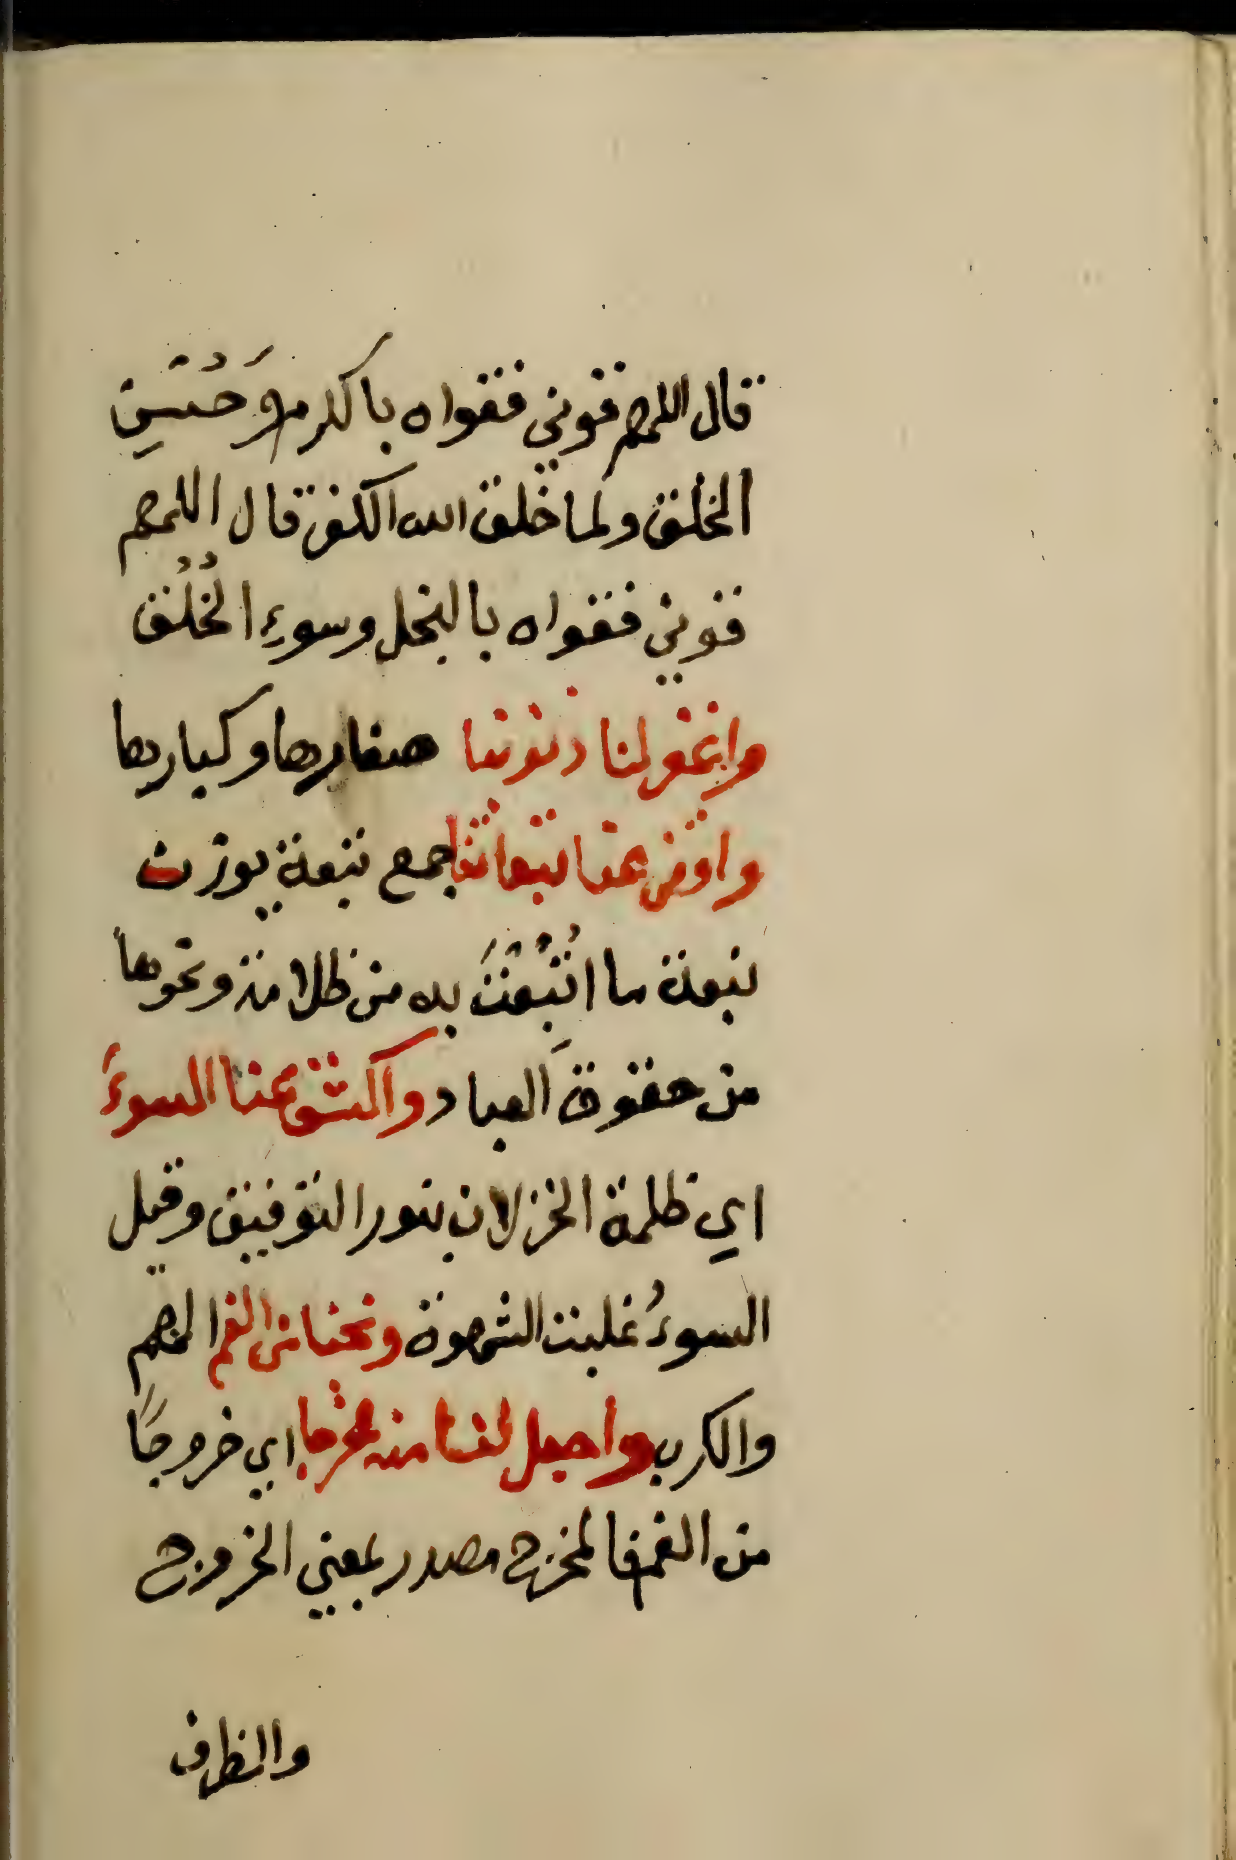 قال اللهم قوني فقواه بالكرم وَحُسْنِ
الخلق ولما خلق الله الكفر قال اللهم
قوني فقواه بالبخل وسوءِ الخُلُق
واغفر لنا ذنوبنا صغارها وكبارها
واقض عنا تبعاتنا جمع تبعة بوزن
تبعة ما اتُّبِعْتَ به من ظلامة ونحوها
من حقوق العباد واكشف عنا السوءَ
اي ظلمة الخزلان بنور التوفيق وقيل
السوءُ غلبت الشهوة ونجنا من الغم الهم
والكرب واجعل لنا منه مخرجا اي خروجًا
من الغم فالمخرج مصدر بمعني الخروج
والظرف